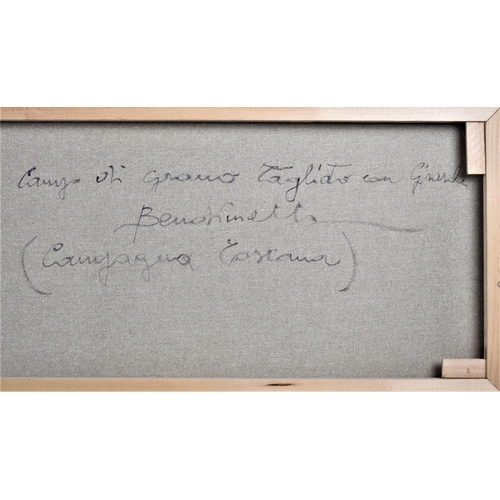 Campo di grano Tagliato con Ginestre
(Campagna Toscana)